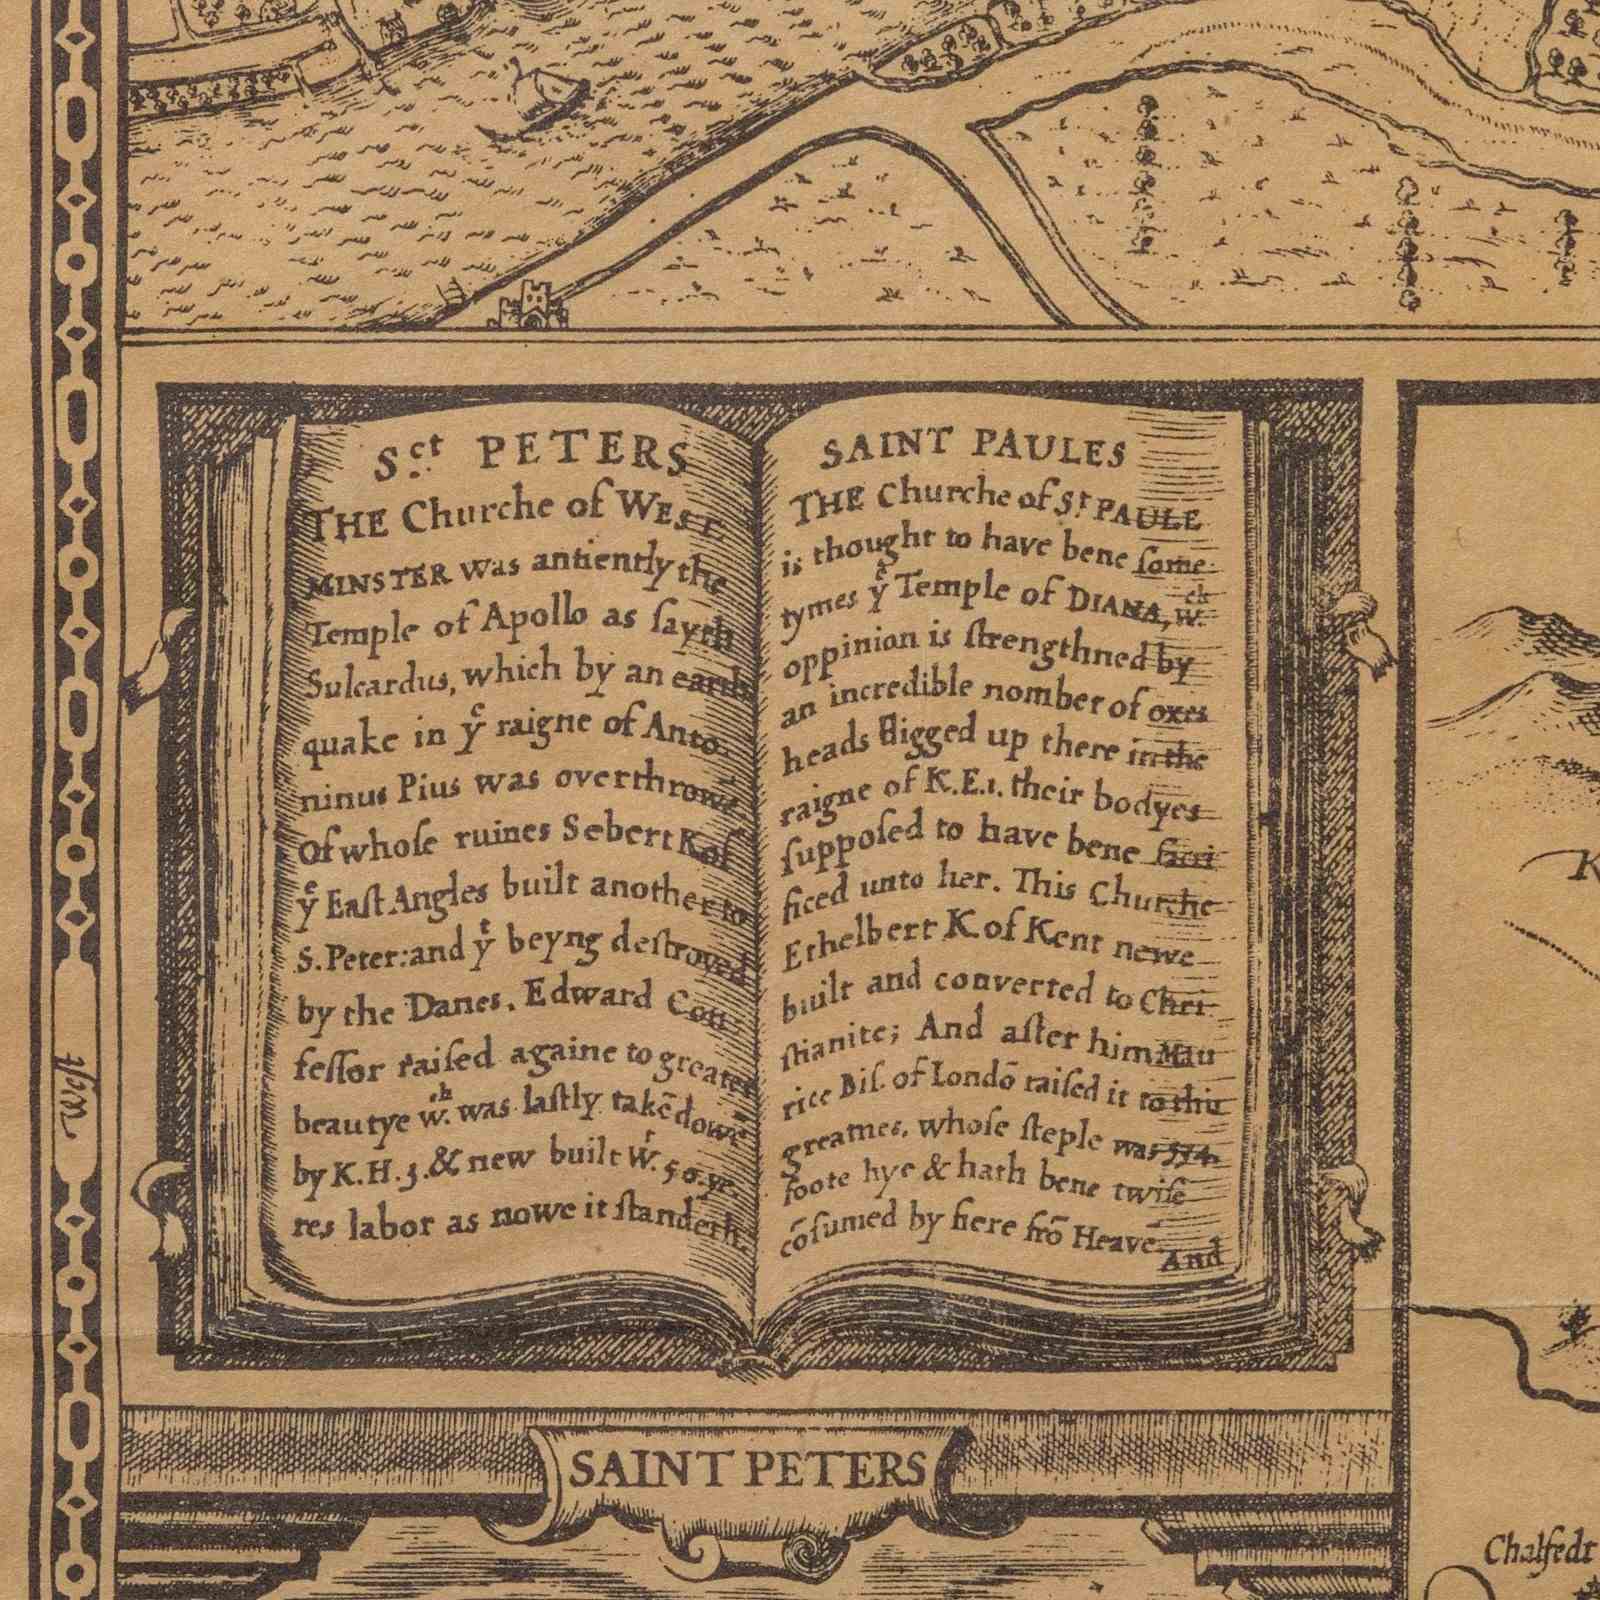 Sct PETERS
THE Churche of WEST
MINSTER was antiently the
Temple of Apollo as ſayth
Sulcardus, which by an earth
quake in yͤ raigne of Anto
ninus Pius was overthrowē
Of whoſe ruines Sebert K of
yͤ Eaſt Angles built another to
S. Peter: and yͭ beyng deſtroyed
by the Danes, Edward Con
feſſor raiſed againe to greater
beautye wͨʰ. was laſtly takē dowē
by K. H. 3. & new built wͭ. 50. ye
res labor as nowe it ſtandeth.
SAINT PAULES
THE Churche of Sͭ PAULE
is thought to have bene ſome
tymes yͤ Temple of DIANA, wͨʰ.
oppinion is ſtrengthned by
an incredible nomber of oxes
heads digged up there in the
raigne of K. E. 1. their bodyes
ſuppoſed to have bene ſacri
ficed unto her. This Churche
Ethelbert K. of Kent newe
built and converted to Chri
ſtianite; And after him Mau
rice Biſ. of Londō raiſed it to this
greatnes, whoſe ſteple was 534
foote hye & hath bene twiſe
cōſumed by fiere frō Heave.
And
West
SAINT PETERS
K
Chalfedt